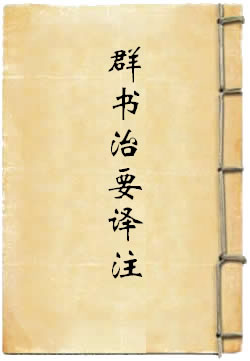 群书治要译注